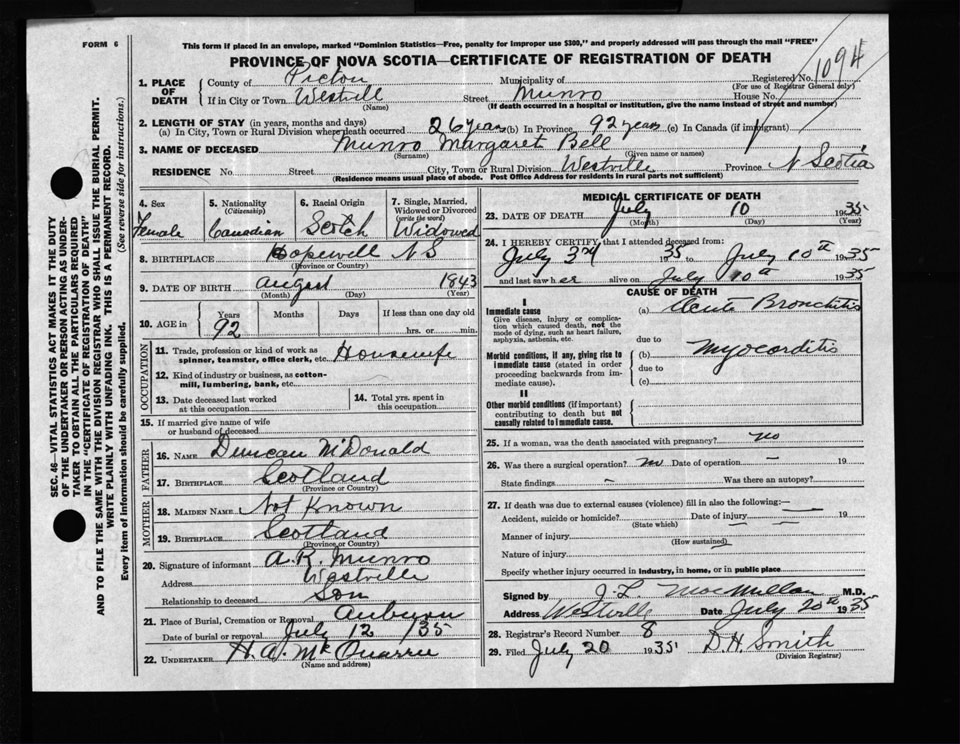 FORM 6
This form if placed in an envelope, marked "Dominion Statistics—Free, penalty for improper use $300," and properly addressed will pass through the mail "FREE"
PROVINCE OF NOVA SCOTIA—CERTIFICATE OF REGISTRATION OF DEATH
1094
SEC. 46—VITAL STATISTICS ACT MAKES IT THE DUTY
OF THE UNDERTAKER OR PERSON ACTING AS UNDER-
TAKER TO OBTAIN ALL THE PARTICULARS REQUIRED
IN THE "CERTIFICATE OF REGISTRATION OF DEATH"
AND TO FILE THE SAME WITH THE DIVISION REGISTRAR WHO SHALL ISSUE THE BURIAL PERMIT.
WRITE PLAINLY WITH UNFADING INK. THIS IS A PERMANENT RECORD.
Every item of information should be carefully supplied. (See reverse side for instructions.)
1. PLACE OF DEATH
County of Pictou Municipality of Registered No.
(For use of Registrar General only)
If in City or Town Westvill Street Munro House No.
(Name) (If death occurred in a hospital or institution, give the name instead of street and number)
2. LENGTH OF STAY (in years, months and days)
(a) In City, Town or Rural Division where death occurred 26 years (b) In Province 92 years (c) In Canada (if immigrant)
3. NAME OF DECEASED Munro Margaret Bell
(Surname) (Given name or names)
RESIDENCE No. Street City, Town or Rural Division Westville Province N Scotia
(Residence means usual place of abode. Post Office Address for residents in rural parts not sufficient)
4. Sex
Female
5. Nationality
(Citizenship)
Canadian
6. Racial Origin
Scotch
7. Single, Married,
Widowed or Divorced
(write the word)
Widowed
8. BIRTHPLACE Hopewell N S
(Province or Country)
9. DATE OF BIRTH August 1843
(Month) (Day) (Year)
10. AGE in
Years Months Days If less than one day old
92 hrs. or min.
OCCUPATION
11. Trade, profession or kind of work as
spinner, teamster, office clerk, etc. Housewife
12. Kind of industry or business, as cotton-
mill, lumbering, bank, etc.
13. Date deceased last worked
at this occupation
14. Total yrs. spent in
this occupation
15. If married give name of wife
or husband of deceased
FATHER
16. NAME Duncan McDonald
17. BIRTHPLACE Scotland
(Province or Country)
MOTHER
18. MAIDEN NAME Not Known
19. BIRTHPLACE Scotland
(Province or Country)
20. Signature of informant A. R. Munro
Address Westville
Relationship to deceased Son
21. Place of Burial, Cremation or Removal Auburn
Date of burial or removal July 12 /35
22. UNDERTAKER H. A. McQuarrie
(Name and address)
MEDICAL CERTIFICATE OF DEATH
23. DATE OF DEATH July 10 1935
(Month) (Day) (Year)
24. I HEREBY CERTIFY, that I attended deceased from:
July 3rd 35 to July 10th 1935
and last saw her alive on July 10th 1935
CAUSE OF DEATH
I
Immediate cause
Give disease, injury or complica-
tion which caused death, not the
mode of dying, such as heart failure,
asphyxia, asthenia, etc.
(a) Acute Bronchitis
due to
Morbid conditions, if any, giving rise to
immediate cause (stated in order
proceeding backwards from im-
mediate cause).
(b) Myocarditis
due to
(c)
II
Other morbid conditions (if important)
contributing to death but not
causally related to immediate cause.
25. If a woman, was the death associated with pregnancy? no
26. Was there a surgical operation? no Date of operation — 19
State findings — Was there an autopsy?
27. If death was due to external causes (violence) fill in also the following:—
Accident, suicide or homicide? Date of injury 19
(State which)
Manner of injury
(How sustained)
Nature of injury
Specify whether injury occurred in industry, in home, or in public place
Signed by J. L. MacMillan M.D.
Address Westville Date July 20th 1935
28. Registrar's Record Number 8
29. Filed July 20 1935 D. H. Smith
(Division Registrar)